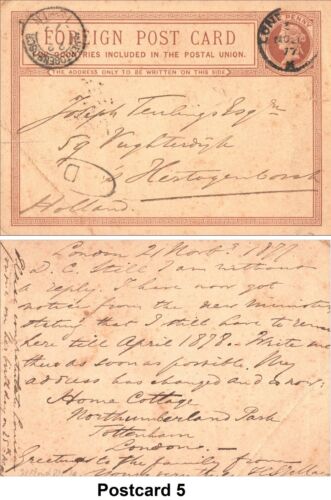 FOREIGN POST CARD
COUNTRIES INCLUDED IN THE POSTAL UNION.
THE ADDRESS ONLY TO BE WRITTEN ON THIS SIDE
PENNY
77
Joseph Teulings Esqre
59 Vughterdijk
s Hertogenbosch
Holland.
D
London 21 Novb. 1877
D. C. Still I am without
a reply. I have now got
notice from the new
stating that I still have to
here till April 1878. Write me
thus as soon as possible. My
address has changed and is now.
Home Cottage
Northumberland Park
Tottenham
London.
Greetings to the family from
Postcard 5